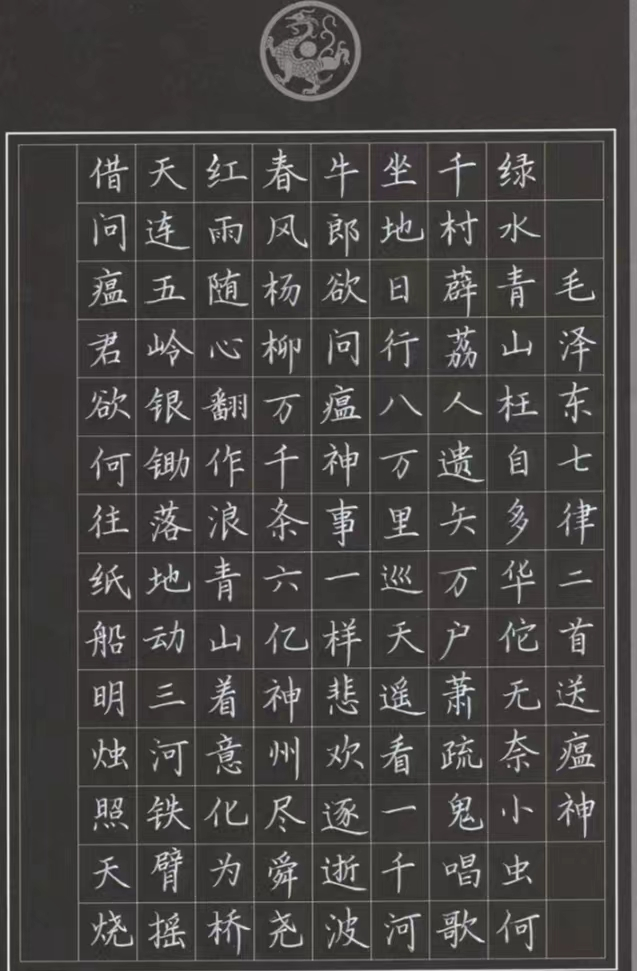 毛泽东七律二首送瘟神
绿水青山枉自多华佗无奈小虫何
千村薜荔人遗矢万户萧疏鬼唱歌
坐地日行八万里巡天遥看一千河
牛郎欲问瘟神事一样悲欢逐逝波
春风杨柳万千条六亿神州尽舜尧
红雨随心翻作浪青山着意化为桥
天连五岭银锄落地动三河铁臂摇
借问瘟君欲何往纸船明烛照天烧